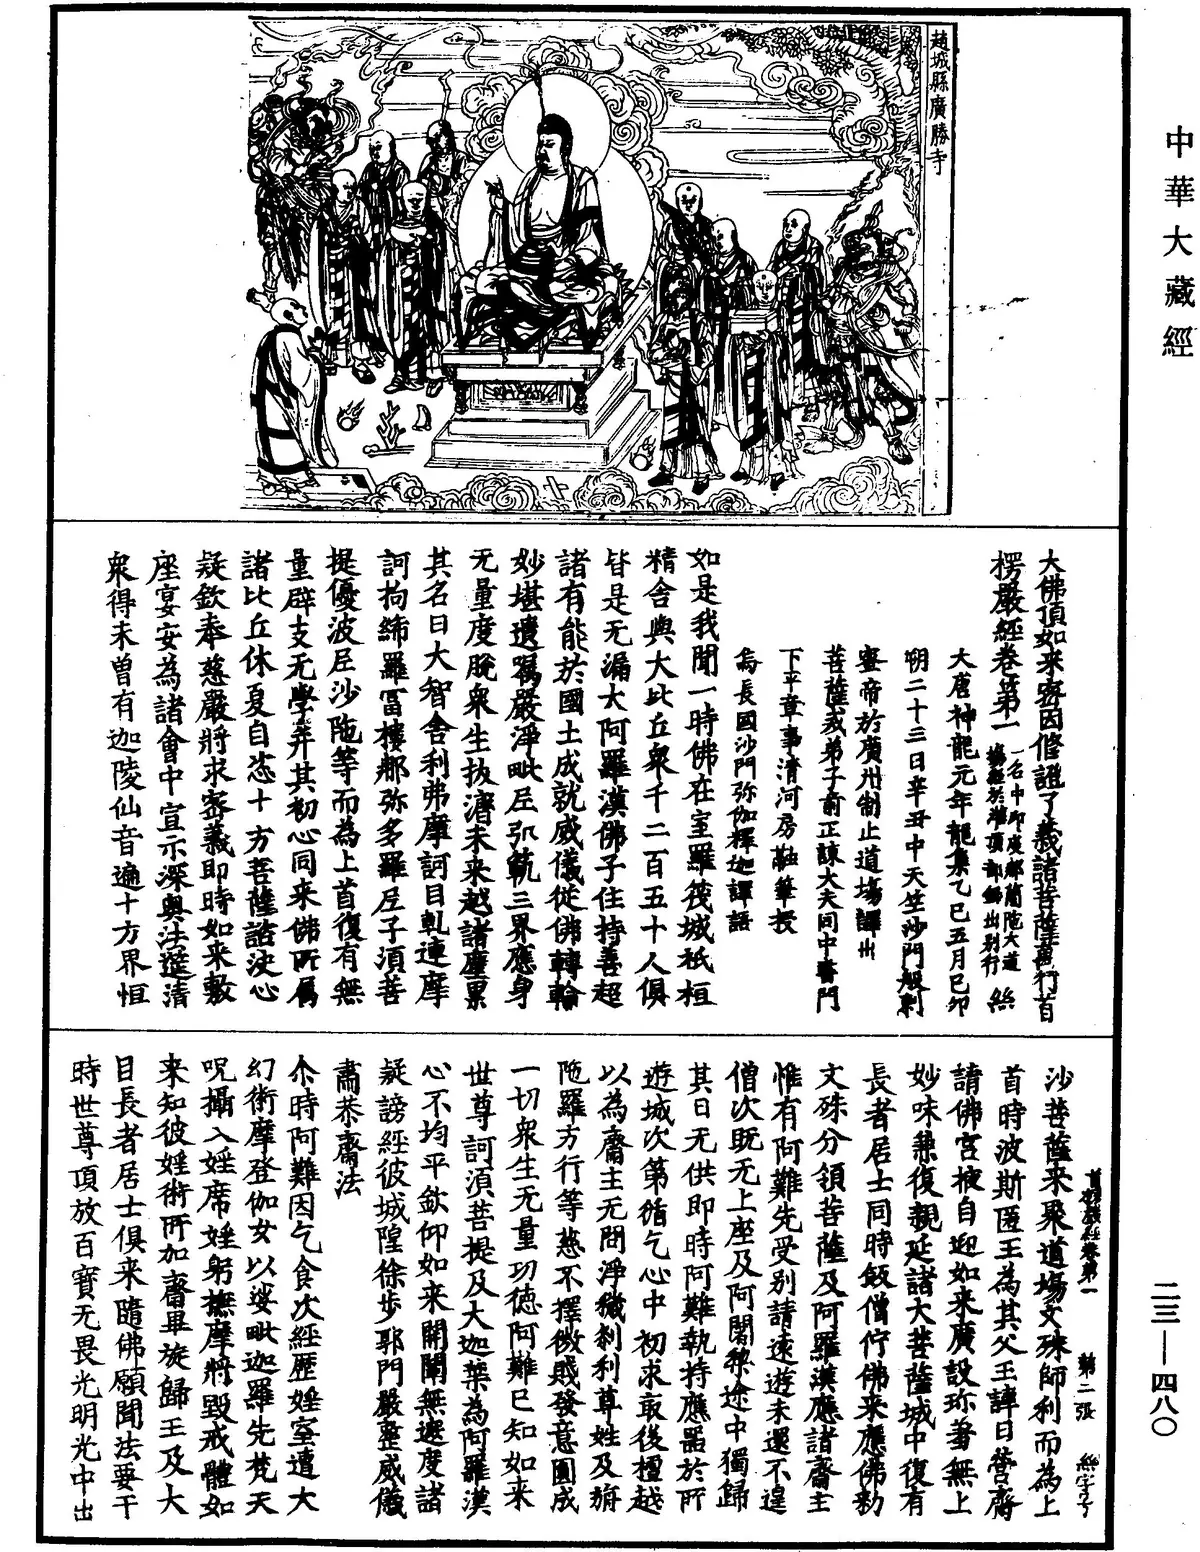 中華大藏經
趙城縣廣勝寺
大佛頂如來密因修證了義諸菩薩萬行首
楞嚴經卷第一 一名中印度那蘭陀大道場經於灌頂部錄出別行 絲
大唐神龍元年龍集乙巳五月己卯
朔二十三日辛丑中天竺沙門般剌
蜜帝於廣州制止道場譯出
菩薩戒弟子前正諫大夫同中書門
下平章事清河房融筆授
烏長國沙門弥伽釋迦譯語
如是我聞一時佛在室羅筏城祇桓
精舍與大比丘衆千二百五十人俱
皆是无漏大阿羅漢佛子住持善超
諸有能於國土成就威儀從佛轉輪
妙堪遺囑嚴淨毗尼弘範三界應身
无量度脫衆生拔濟未來越諸塵累
其名曰大智舍利弗摩訶目乹連摩
訶拘絺羅富樓那弥多羅尼子須菩
提優波尼沙陁等而為上首復有無
量辟支无學并其初心同來佛所屬
諸比丘休夏自恣十方菩薩諮決心
疑欽奉慈嚴將求密義即時如來敷
座宴安為諸會中宣示深奧法筵清
衆得未曾有迦陵仙音遍十方界恒
首楞嚴經卷第一 第二張 絲字号
沙菩薩来聚道場文殊師利而為上
首時波斯匿王為其父王諱日營齋
請佛宮掖自迎如来廣設珎羞無上
妙味兼復親延諸大菩薩城中復有
長者居士同時飯僧佇佛来應佛勑
文殊分領菩薩及阿羅漢應諸齋主
惟有阿難先受別請遠遊未還不遑
僧次既无上座及阿闍棃途中獨歸
其日无供即時阿難執持應器於所
遊城次第循乞心中初求㝡後檀越
以為齋主无問淨穢刹利尊姓及旃
陁羅方行等慈不擇微賤發意圓成
一切衆生无量功德阿難已知如来
世尊訶須菩提及大迦葉為阿羅漢
心不均平欽仰如来開闡無遮度諸
疑謗經彼城隍徐步郭門嚴整威儀
肅恭齋法
尒時阿難因乞食次經歷婬室遭大
幻術摩登伽女以娑毗迦羅先梵天
呪攝入婬席婬躬撫摩將毀戒體如
来知彼婬術所加齋畢旋歸王及大
臣長者居士俱来隨佛願聞法要于
時世尊頂放百寶无畏光明光中出
二三—四八〇